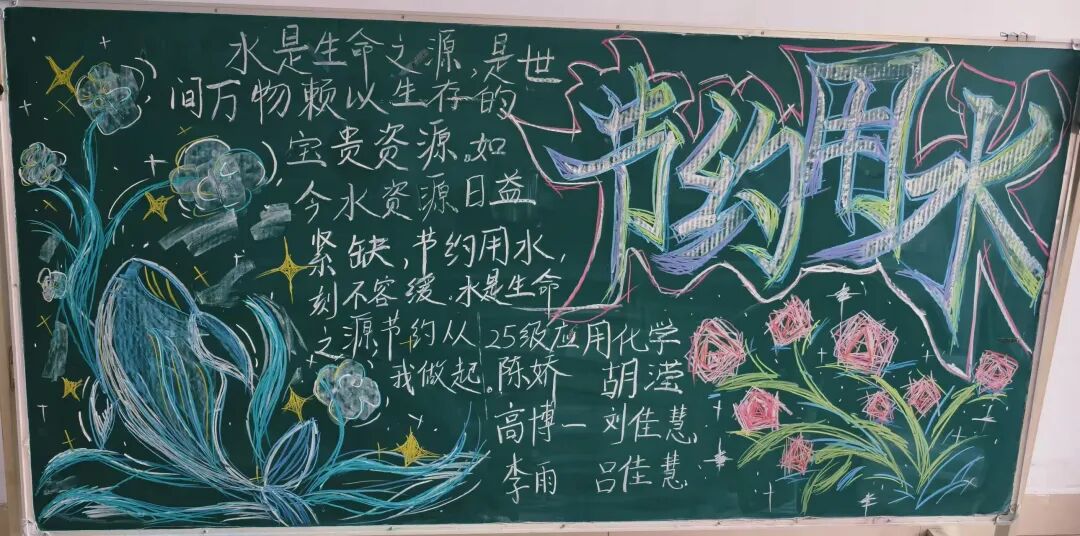 节约用水
水是生命之源,是世
间万物赖以生存的
宝贵资源。如
今水资源日益
紧缺,节约用水,
刻不容缓.水是生命
之源节约从
我做起。
25级应用化学
陈娇 胡滢
高博一 刘佳慧
李雨 吕佳慧